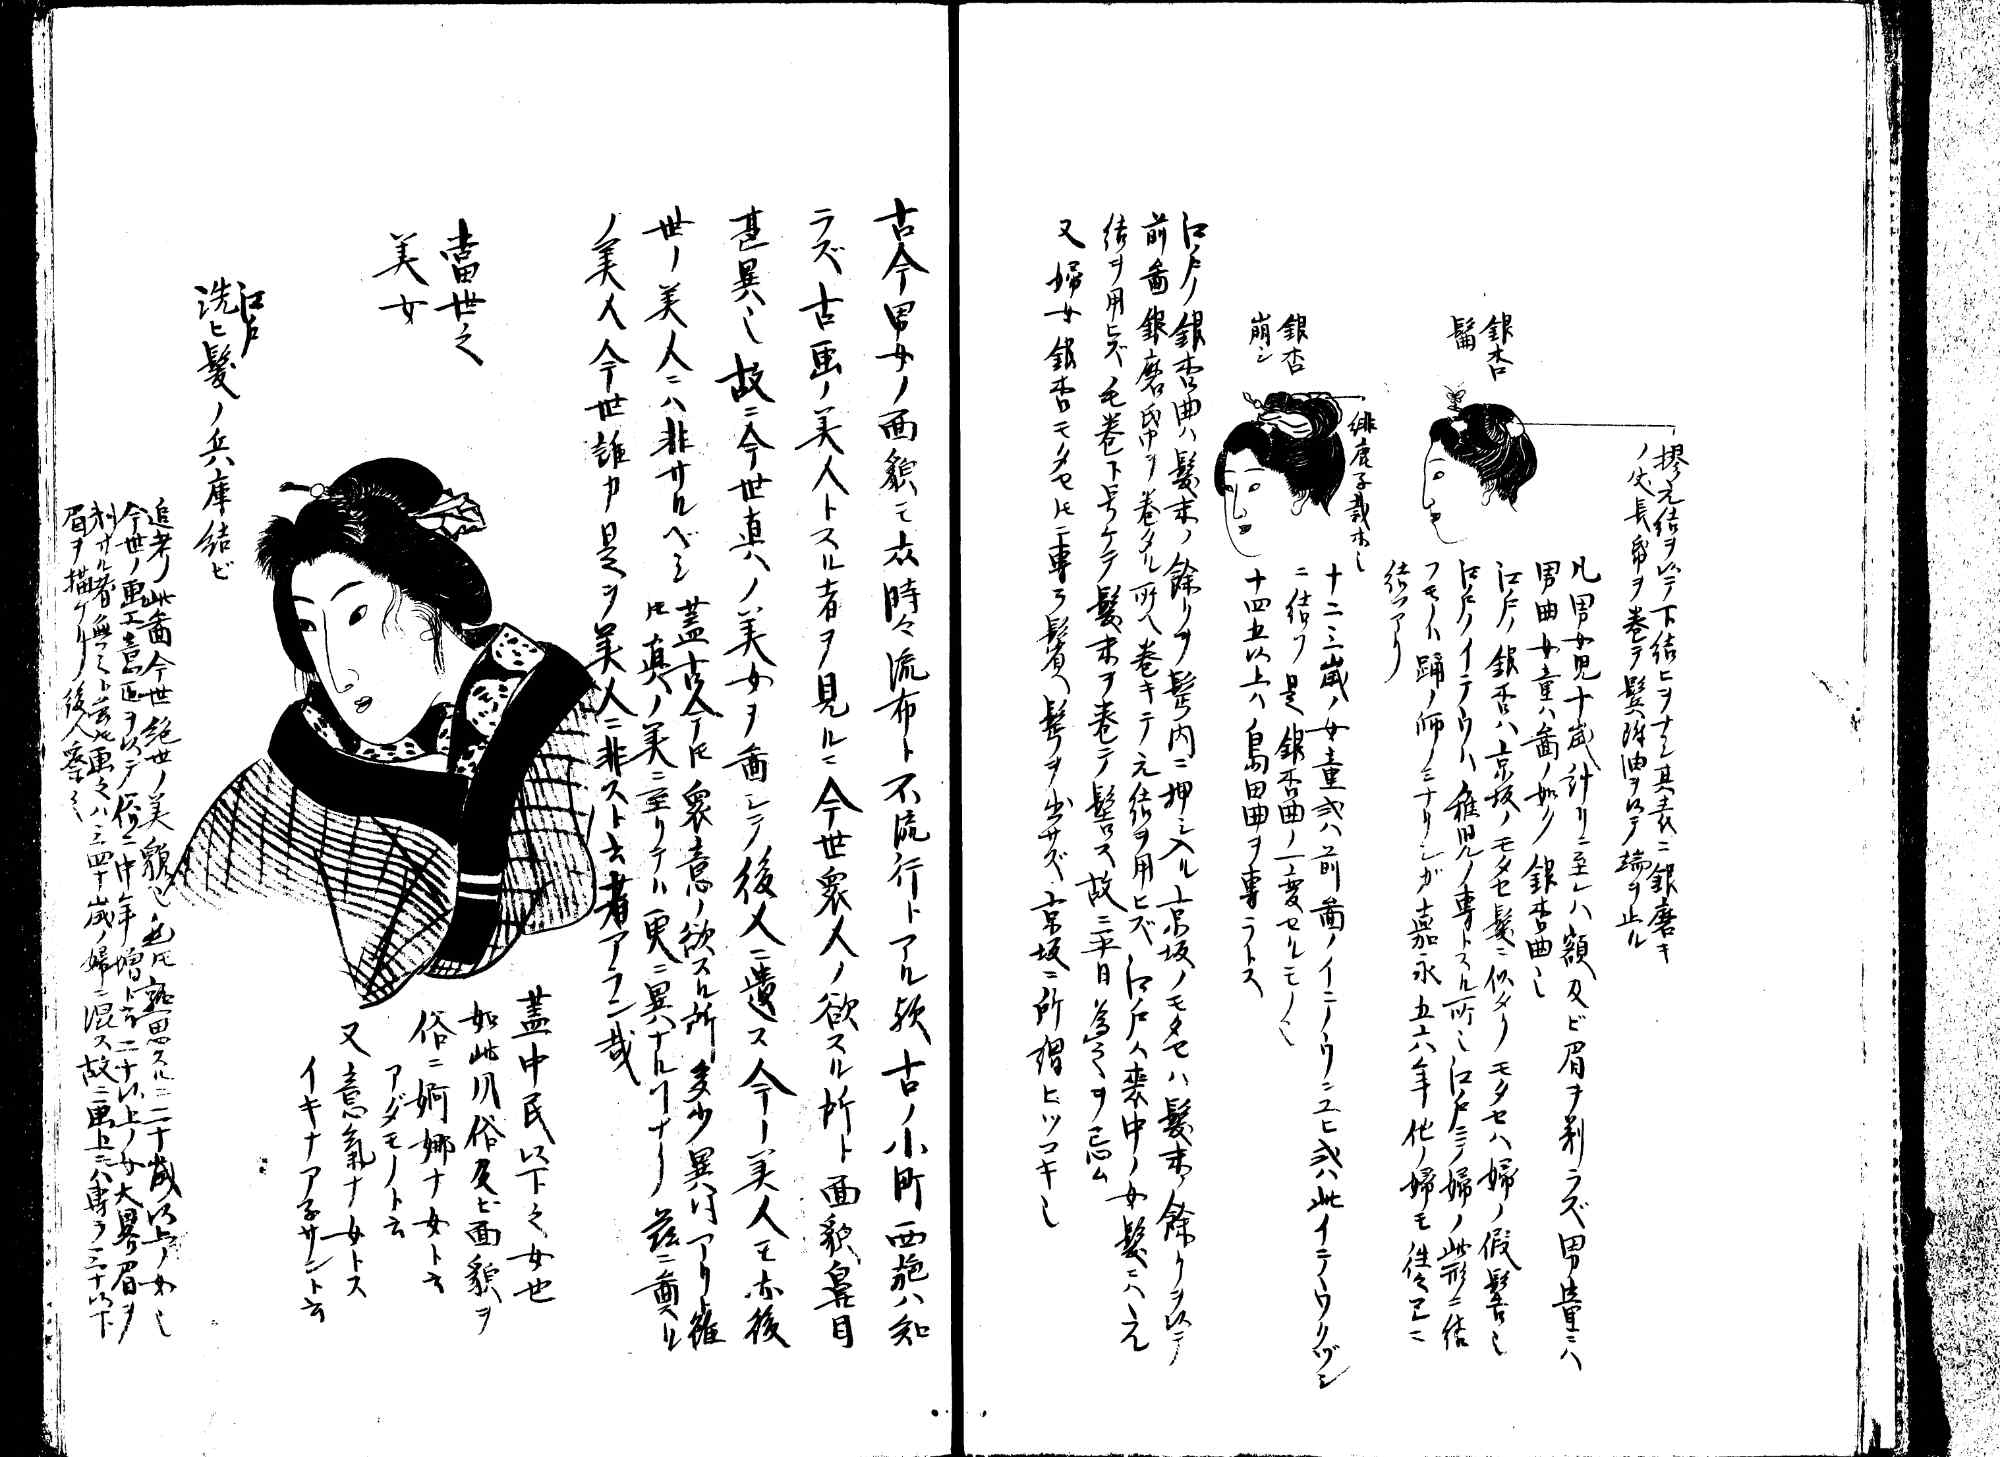 銀杏
髷
摎元結ヲ以テ下結ヒヲナシ其表ニ銀磨キ
ノ丈長帋ヲ巻テ鬂附油ヲ以テ端ヲ止ル
凡男女児十歳計リニ至レハ額及ビ眉ヲ剃ラズ男童ニハ
男曲女童ハ啚ノ如ク銀杏曲也
江戸ノ銀杏ハ京坂ノモタセ髪ニ似タリモタセハ婦ノ假髻也
江戸ノイテウハ稚児ノ専トスル所也江戸ニテ婦ノ此形ニ結
フモノハ踊ノ師ノミナリシガ嘉永五六年他ノ婦モ往々已ニ
結フアリ
銀杏
崩シ
緋鹿子裁等也
十二三歳ノ女童或ハ前啚ノイテウニユヒ或ハ此イテウクヅシ
ニ結フ是銀杏曲ノ一変セルモノ也
十四五以上ハ島田曲ヲ専ラトス
江戸ノ銀杏曲ハ髪末ノ餘リヲ髷内ニ押シ入ル京坂ノモタセハ髪末ノ餘リヲ以テ
前啚銀磨帋ヲ巻タル所ヘ巻キテ元結ヲ用ヒズ江戸ハ褁中ノ女髪ニハ元
結ヲ用ヒズノ毛巻下号ケテ髪末ヲ巻テ髻ス故ニ平日為之ヲ忌ム
又婦女銀杏モタセトモニ専ラ鬢ヘ髱ヲ出サズ京坂ニ所謂ヒツコキ也
古今男女ノ面貌モ亦時々流布ト不流行トアル欤古ノ小町西施ハ知
ラズ古画ノ美人トスル者ヲ見ルニ今世衆人ノ欲スル所ト面貌鼻目
甚異也故ニ今世真ノ美女ヲ啚シテ後人ニ遺ス今ノ美人モ亦後
世ノ美人ニハ非サルベシ蓋古今トモ衆意ノ欲スル所多少異同アリ雖
トモ真ノ美ニ至リテハ更ニ異ナルコトナク茲ニ啚スル
ノ美人今世誰カ是ヲ美人ニ非スト云者アラン哉
當世之
美女
江戸
洗ヒ髪ノ兵庫結ビ
蓋中民以下之女也
如此風俗及ビ面貌ヲ
俗ニ婀娜ナ女ト云
アダモノト云
又意氣ナ女トス
イキナアネサント云
追考ノ此啚今世絶世ノ美貌也然トモ熟思スルニ二十歳以上ノ女也
今世ノ画工意匠ヲ以テ俗ニ中年増ト云二十以上ノ女大畧眉ヲ
剃サル者無シト云トモ画之ハ三四十歳ノ婦ニ混ス故ニ画上ニハ専ラ三十以下
眉ヲ描ケリ後人察之